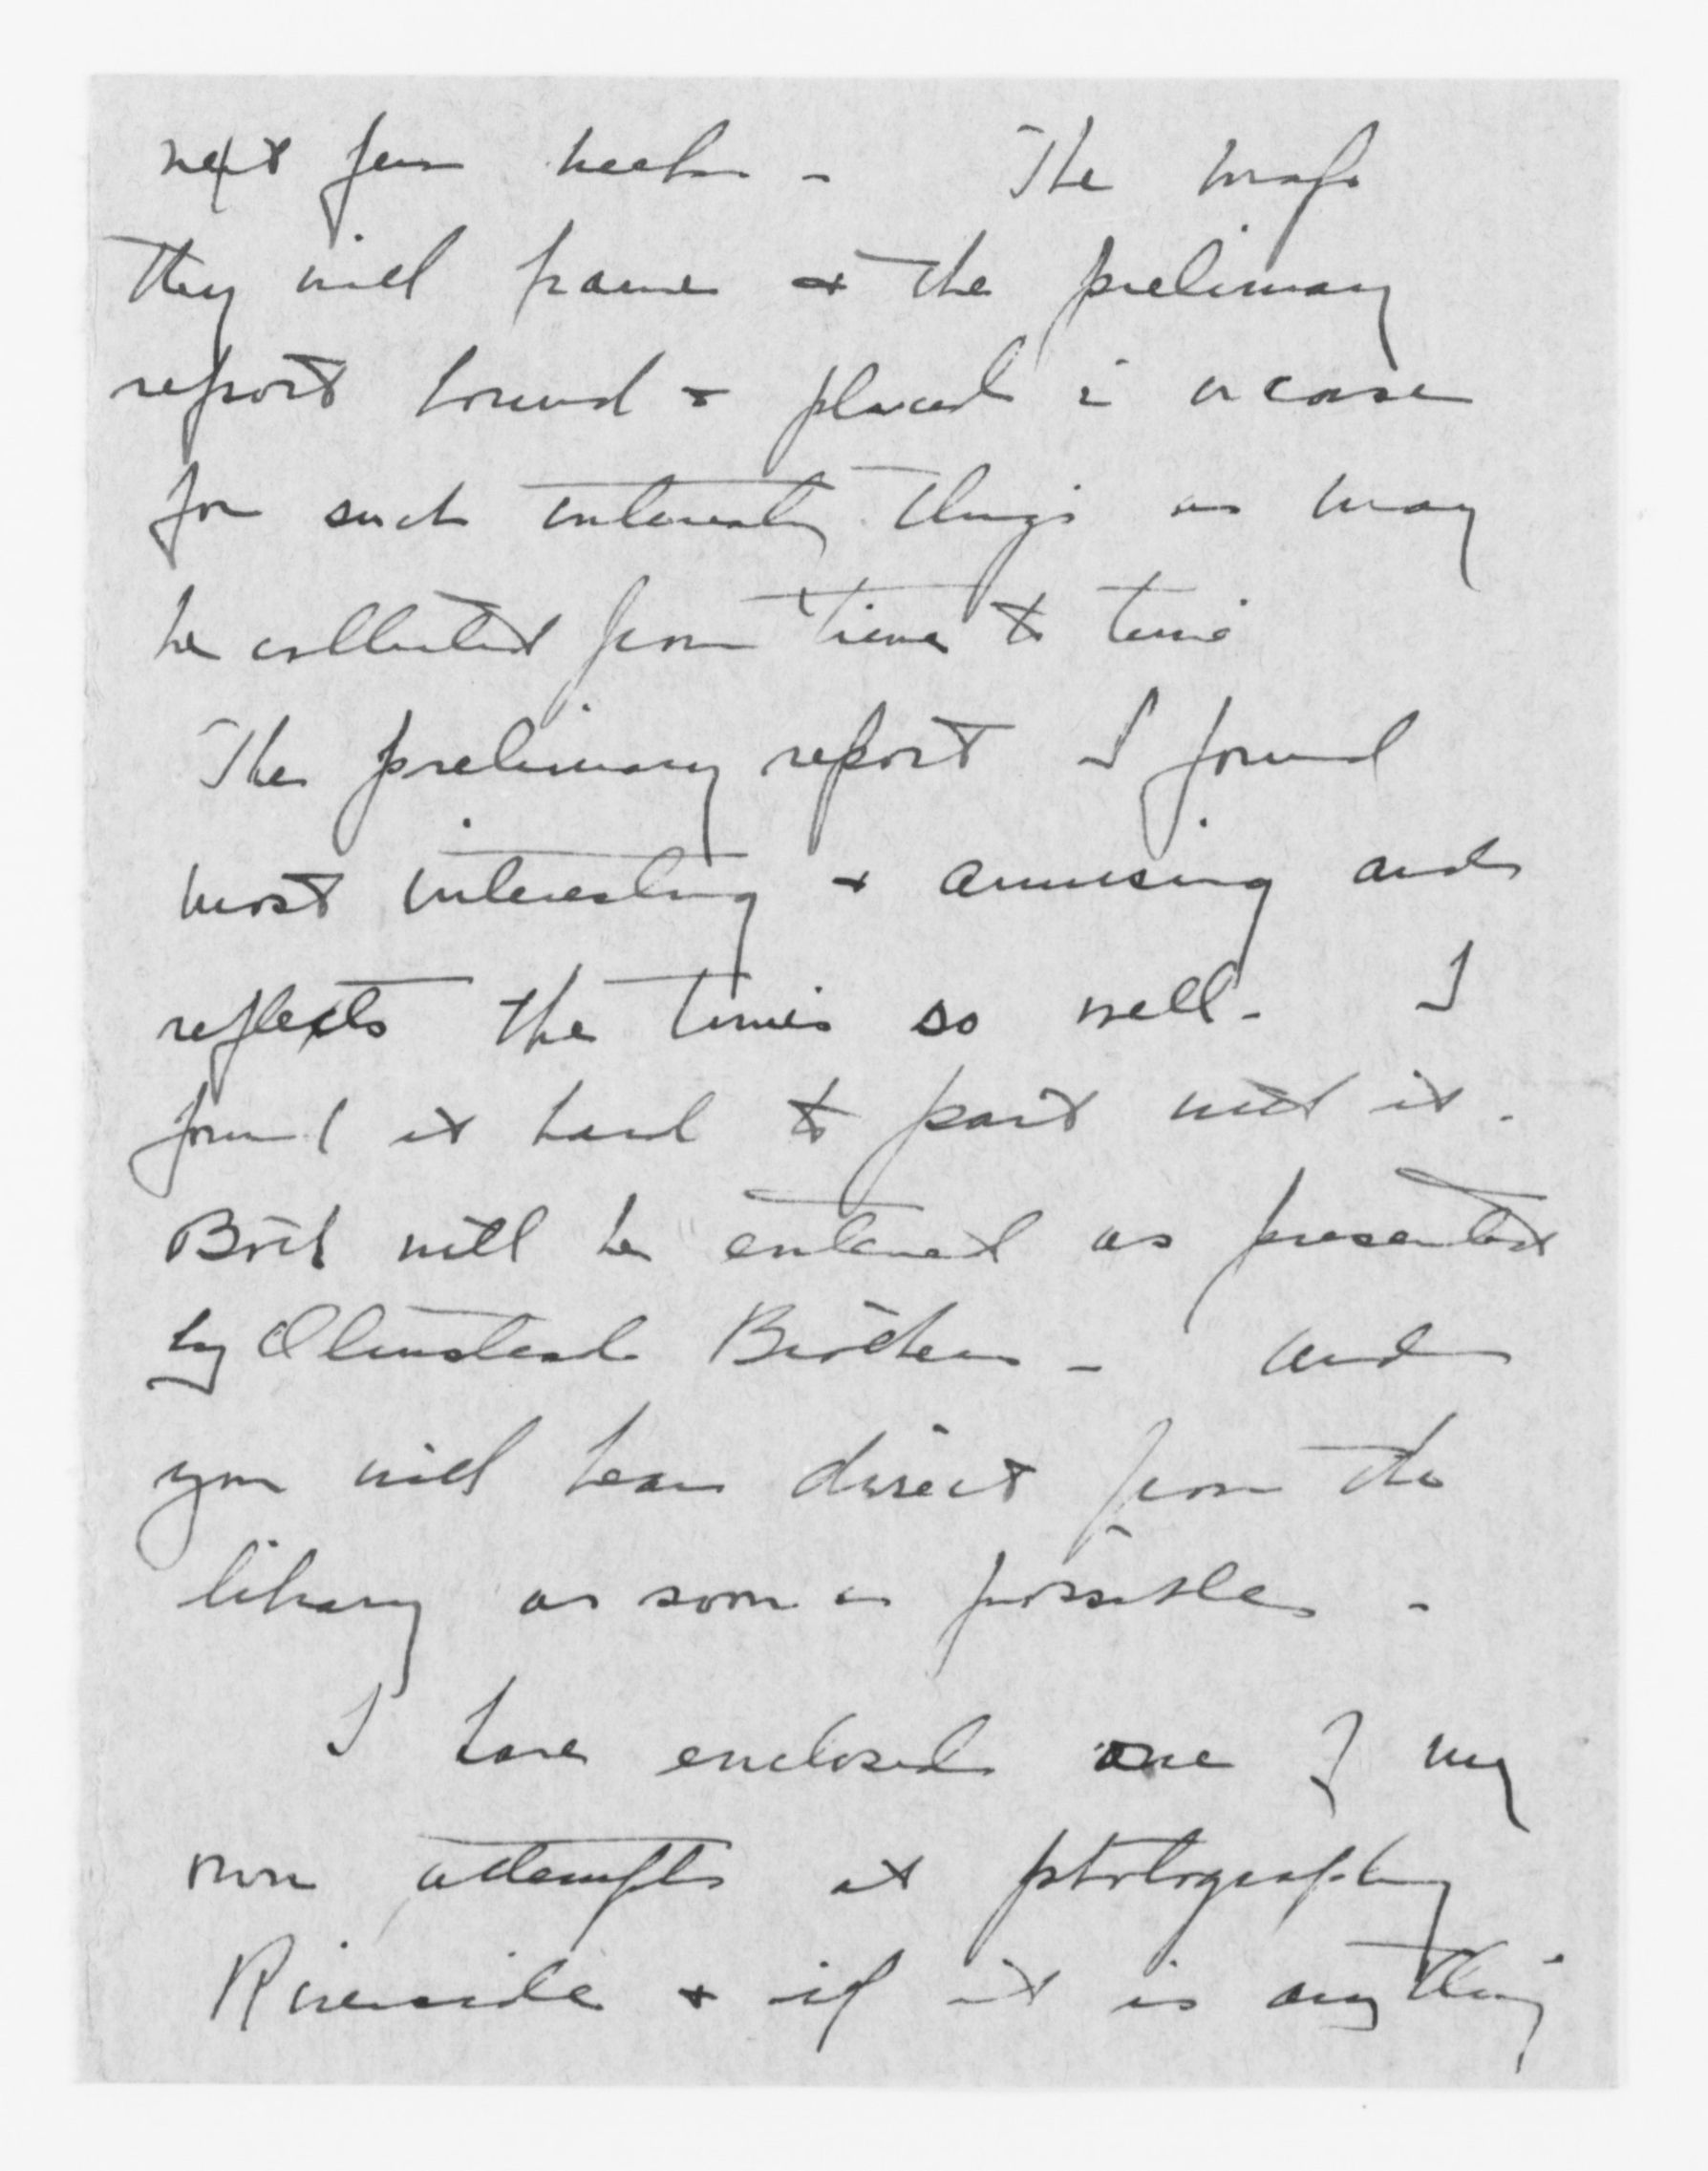 next few weeks - The map
they will frame + the preliminary
report bound + placed in a case
for such interesting things as may
be collected from time to time
The preliminary report I found
most interesting + amusing and
reflects the times so well - I
found it hard to part with it.
Both will be entered as presented
by Olmstead Brothers - and
you will hear direct from the
library as soon as possible -
I have enclosed one of my
own attempts at photography
Riverside + if it is anything